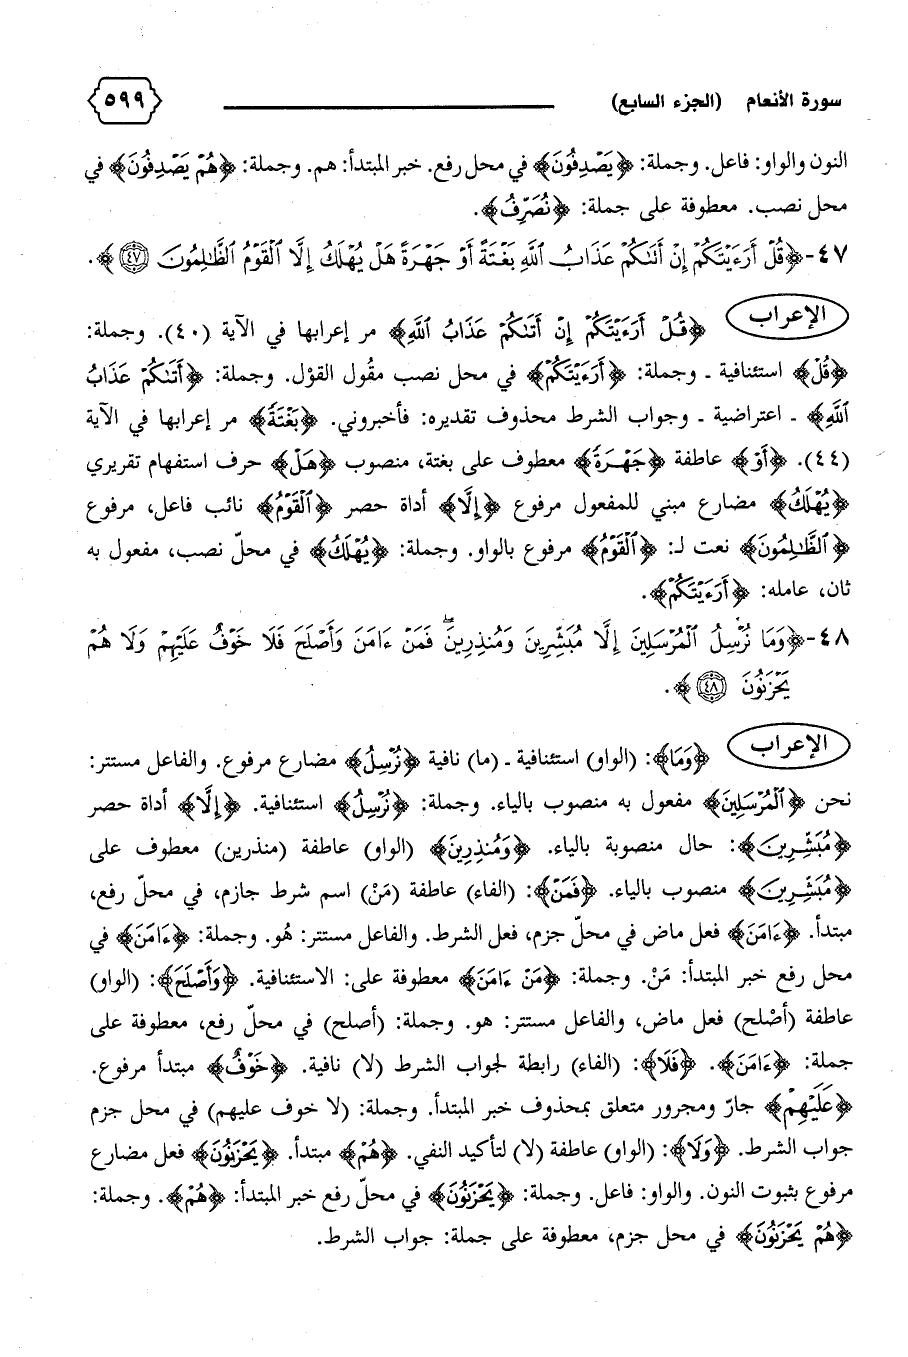 سورة الأنعام (الجزء السابع) ٥٩٩
النون والواو: فاعل. وجملة: ﴿يَصْدِفُونَ﴾ في محل رفع. خبر المبتدأ: هم. وجملة: ﴿هُمْ يَصْدِفُونَ﴾ في
محل نصب. معطوفة على جملة: ﴿نُصَرِّفُ﴾.
٤٧-﴿قُلْ أَرَءَيْتَكُمْ إِنْ أَتَىٰكُمْ عَذَابُ ٱللَّهِ بَغْتَةً أَوْ جَهْرَةً هَلْ يُهْلَكُ إِلَّا ٱلْقَوْمُ ٱلظَّٰلِمُونَ ٤٧﴾.
الإعراب ﴿قُلْ أَرَءَيْتَكُمْ إِنْ أَتَىٰكُمْ عَذَابُ ٱللَّهِ﴾ مر إعرابها في الآية (٤٠). وجملة:
﴿قُلْ﴾ استئنافية ـ وجملة: ﴿أَرَءَيْتَكُمْ﴾ في محل نصب مقُول القوْل. وجملة: ﴿أَتَىٰكُمْ عَذَابُ
ٱللَّهِ﴾ ـ اعتراضية ـ وجواب الشرط محذوف تقديره: فأخبروني. ﴿بَغْتَةً﴾ مر إعرابها في الآية
(٤٤). ﴿أَوْ﴾ عاطفة ﴿جَهْرَةً﴾ معطوف على بغتة، منصوب ﴿هَلْ﴾ حرف استفهام تقريري
﴿يُهْلَكُ﴾ مضارع مبني للمفعول مرفوع ﴿إِلَّا﴾ أداة حصر ﴿ٱلْقَوْمُ﴾ نائب فاعل، مرفوع
﴿ٱلظَّٰلِمُونَ﴾ نعت لـ: ﴿ٱلْقَوْمُ﴾ مرفوع بالواو. وجملة: ﴿يُهْلَكُ﴾ في محلّ نصب، مفعول به
ثان، عامله: ﴿أَرَءَيْتَكُمْ﴾.
٤٨-﴿وَمَا نُرْسِلُ ٱلْمُرْسَلِينَ إِلَّا مُبَشِّرِينَ وَمُنذِرِينَۖ فَمَنْ ءَامَنَ وَأَصْلَحَ فَلَا خَوْفٌ عَلَيْهِمْ وَلَا هُمْ
يَحْزَنُونَ ٤٨﴾.
الإعراب ﴿وَمَا﴾: (الواو) استئنافية ـ (ما) نافية ﴿نُرْسِلُ﴾ مضارع مرفوع. والفاعل مستتر:
نحن ﴿ٱلْمُرْسَلِينَ﴾ مفعول به منصوب بالياء. وجملة: ﴿نُرْسِلُ﴾ استئنافية. ﴿إِلَّا﴾ أداة حصر
﴿مُبَشِّرِينَ﴾: حال منصوبة بالياء. ﴿وَمُنذِرِينَ﴾ (الواو) عاطفة (منذرين) معطوف على
﴿مُبَشِّرِينَ﴾ منصوب بالياء. ﴿فَمَنْ﴾: (الفاء) عاطفة (مَنْ) اسم شرط جازم، في محلّ رفع،
مبتدأ. ﴿ءَامَنَ﴾ فعل ماض في محلّ جزم، فعل الشرط. والفاعل مستتر: هُو. وجملة: ﴿ءَامَنَ﴾ في
محل رفع خبر المبتدأ: مَنْ. وجملة: ﴿مَنْ ءَامَنَ﴾ معطوفة على: الاستئنافية. ﴿وَأَصْلَحَ﴾: (الواو)
عاطفة (أصْلح) فعل ماض، والفاعل مستتر: هو. وجملة: (أصلح) في محلّ رفع، معطوفة على
جملة: ﴿ءَامَنَ﴾. ﴿فَلَا﴾: (الفاء) رابطة لجواب الشرط (لا) نافية. ﴿خَوْفٌ﴾ مبتدأ مرفوع.
﴿عَلَيْهِمْ﴾ جارّ ومجرور متعلق بمحذوف خبر المبتدأ. وجملة: (لا خوف عليهم) في محل جزم
جواب الشرط. ﴿وَلَا﴾: (الواو) عاطفة (لا) لتأكيد النفي. ﴿هُمْ﴾ مبتدأ. ﴿يَحْزَنُونَ﴾ فعل مضارع
مرفوع بثبوت النون. والواو: فاعل. وجملة: ﴿يَحْزَنُونَ﴾ في محلّ رفع خبر المبتدأ: ﴿هُمْ﴾. وجملة:
﴿هُمْ يَحْزَنُونَ﴾ في محل جزم، معطوفة على جملة: جواب الشرط.